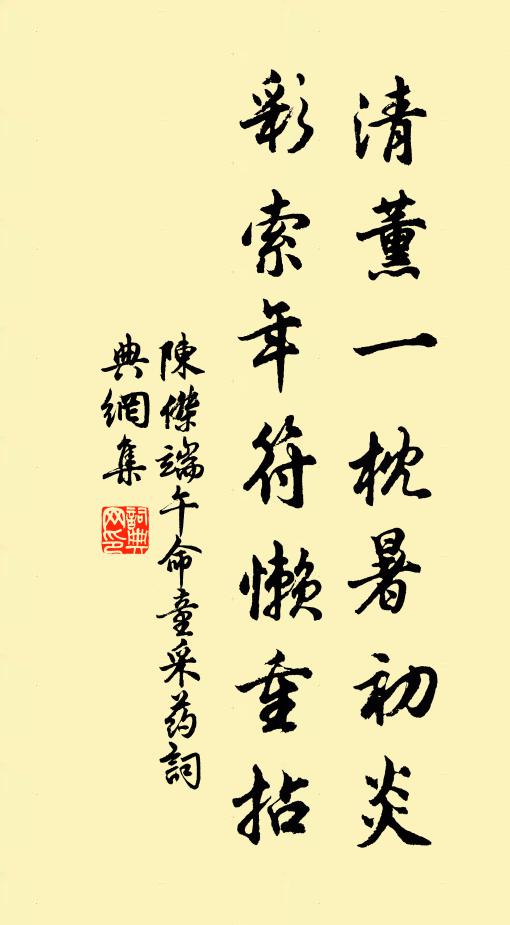 清薰一枕暑初炎
彩索年符懶重拈
陳傑端午命童采药詞
典網集
詞典
网印